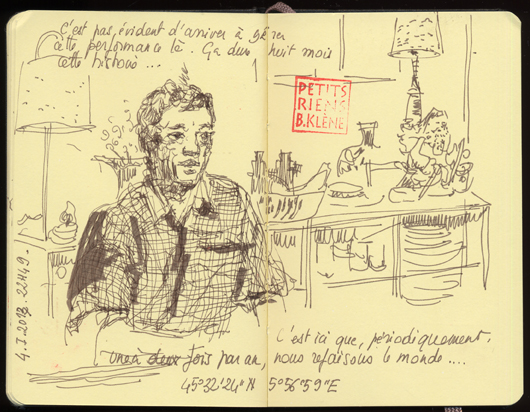 C'est pas évident d'arriver à gérer
cette performance là. Ça dure huit mois
cette histoire ...
PETITS
RIENS
B.KLÈNE
4.I.2013. 22H49.
C'est ici que, périodiquement,
une à deux fois par an, nous refaisons le monde ....
45°32'24"N 5°56'59"E